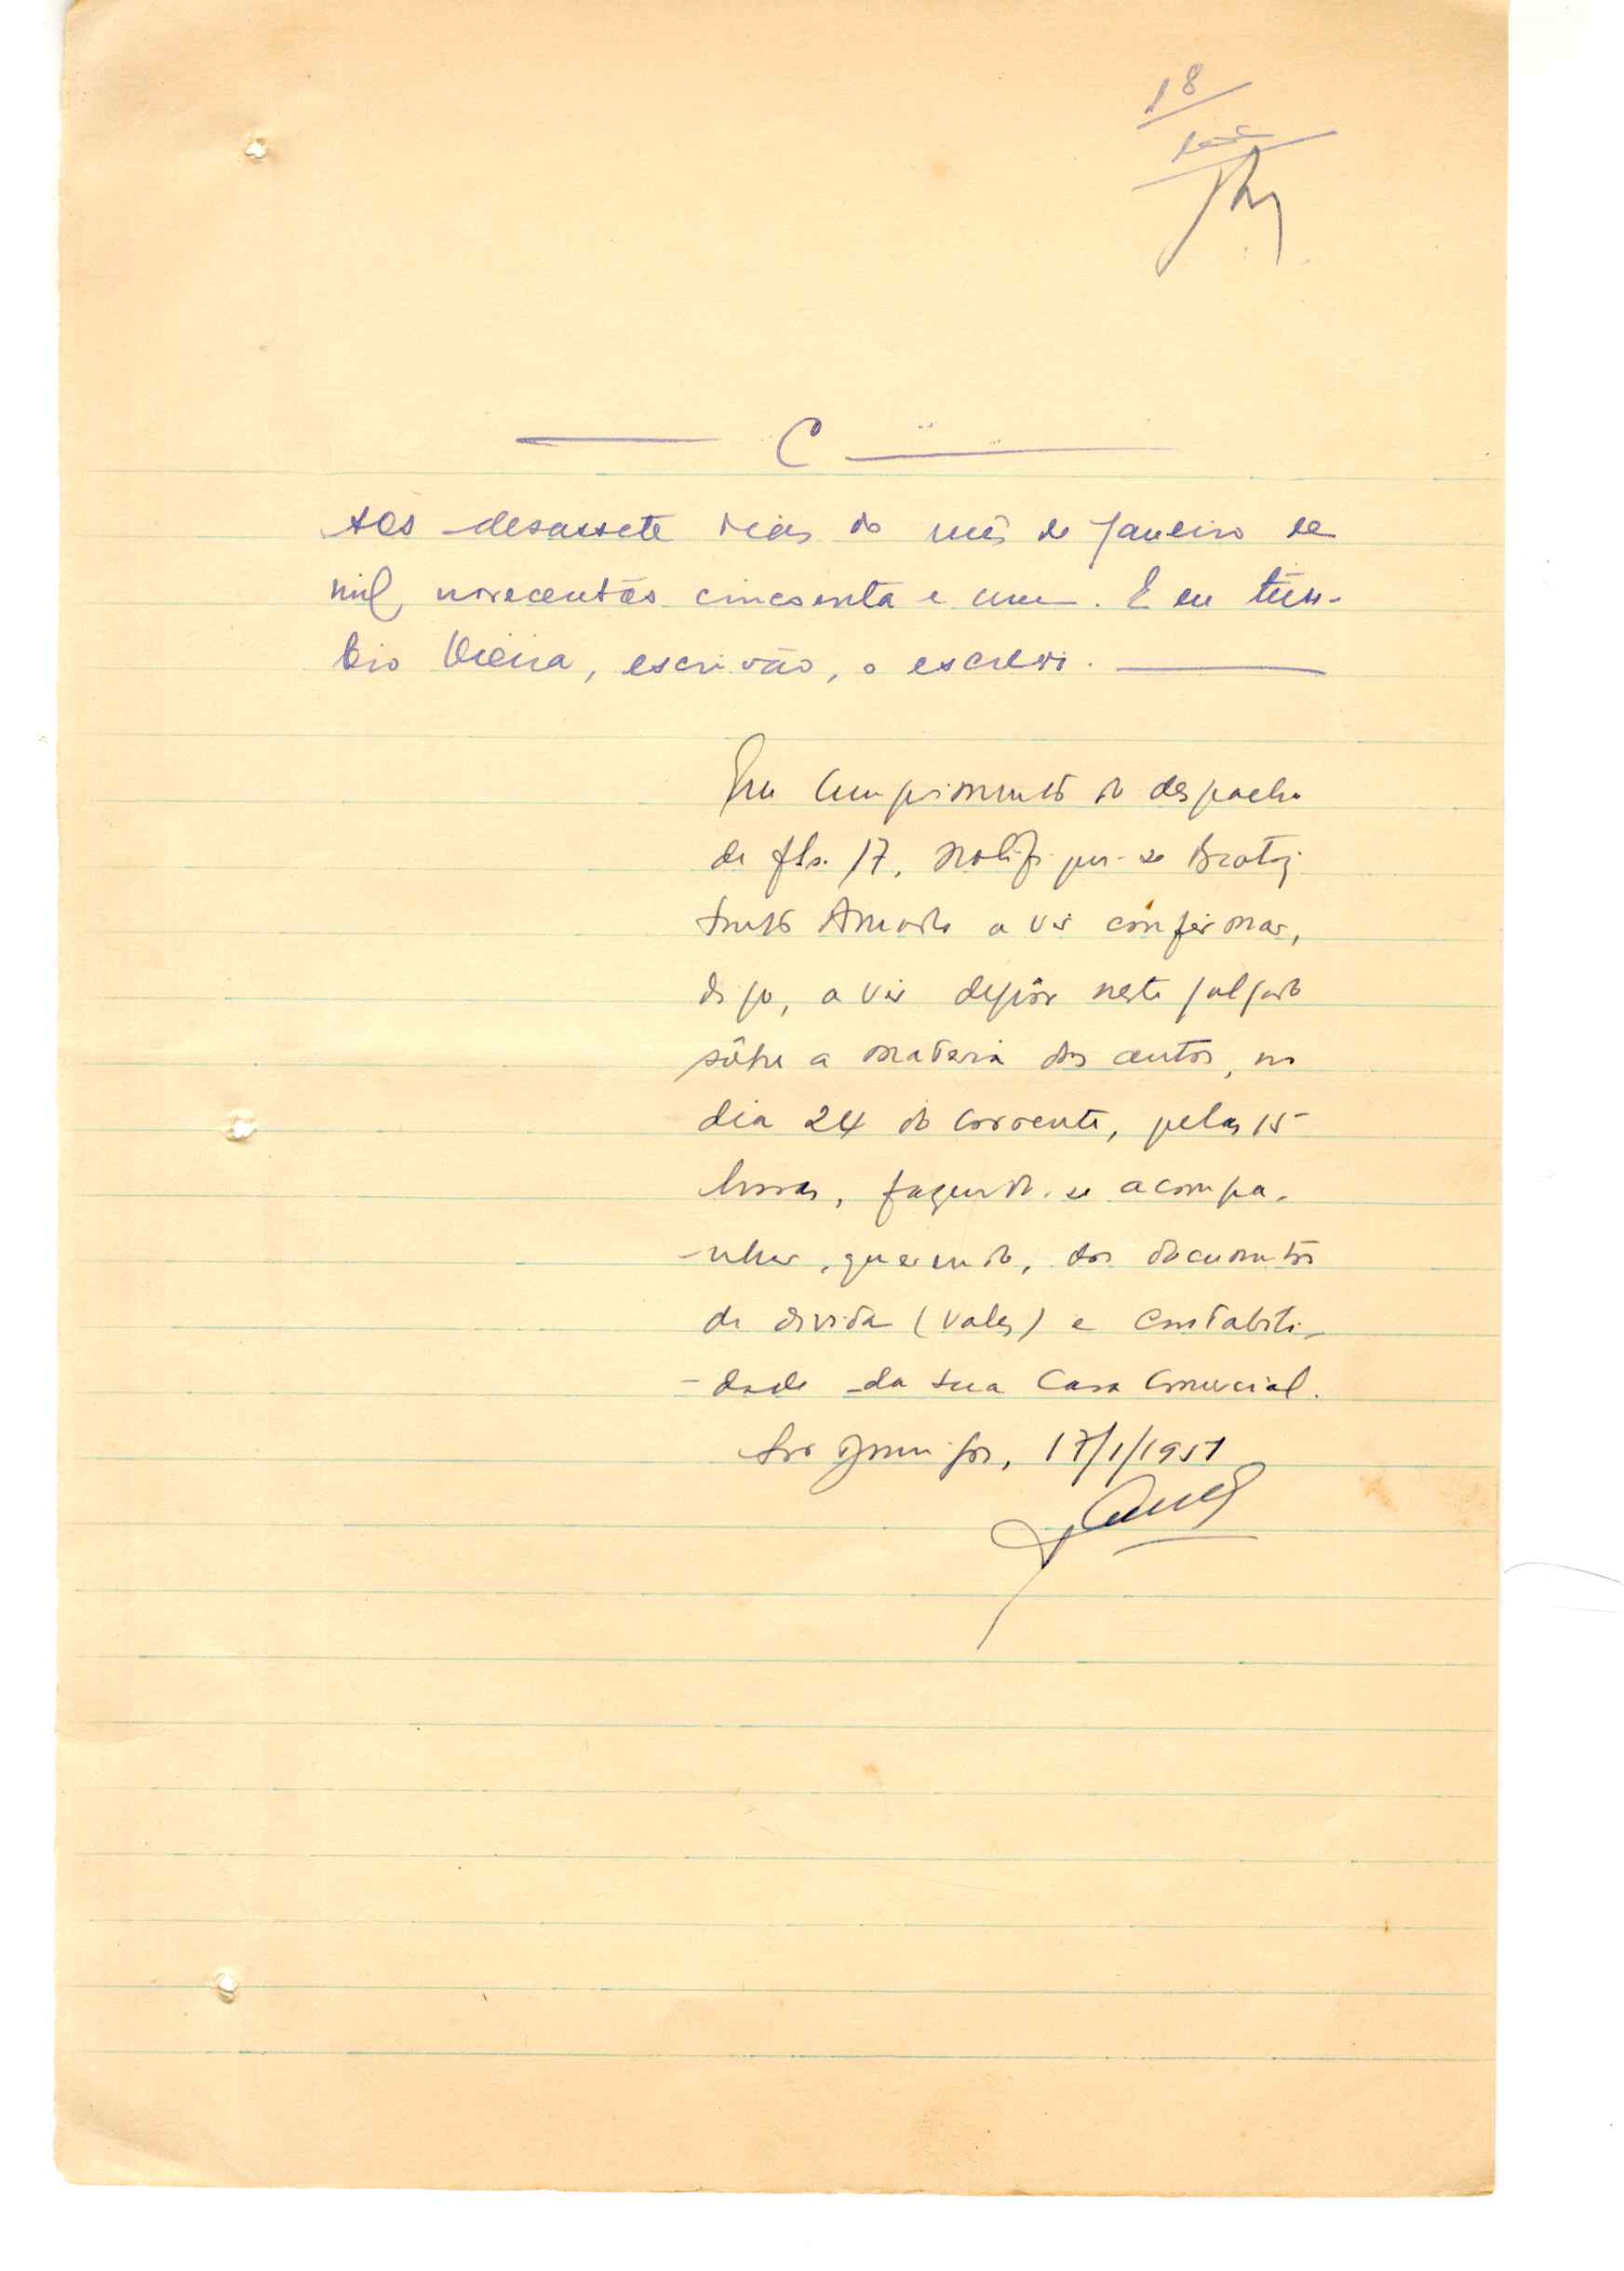 18
C
Aos desassete dias do mês de Janeiro de
mil novecentos cincoenta e um. E eu
Vieira, escrivão, o escrevi.
Em cumprimento do despacho
de fls. 17, notifique-se
a vir confirmar,
digo, a vir depôr neste julgado
sôbre a materia dos autos, no
dia 24 do corrente, pelas 15
horas, fazendo-se acompa-
-nhar, querendo, dos documentos
de divida (vales) e contabili-
-dade da sua casa comercial.
São Domingos, 17/1/1951